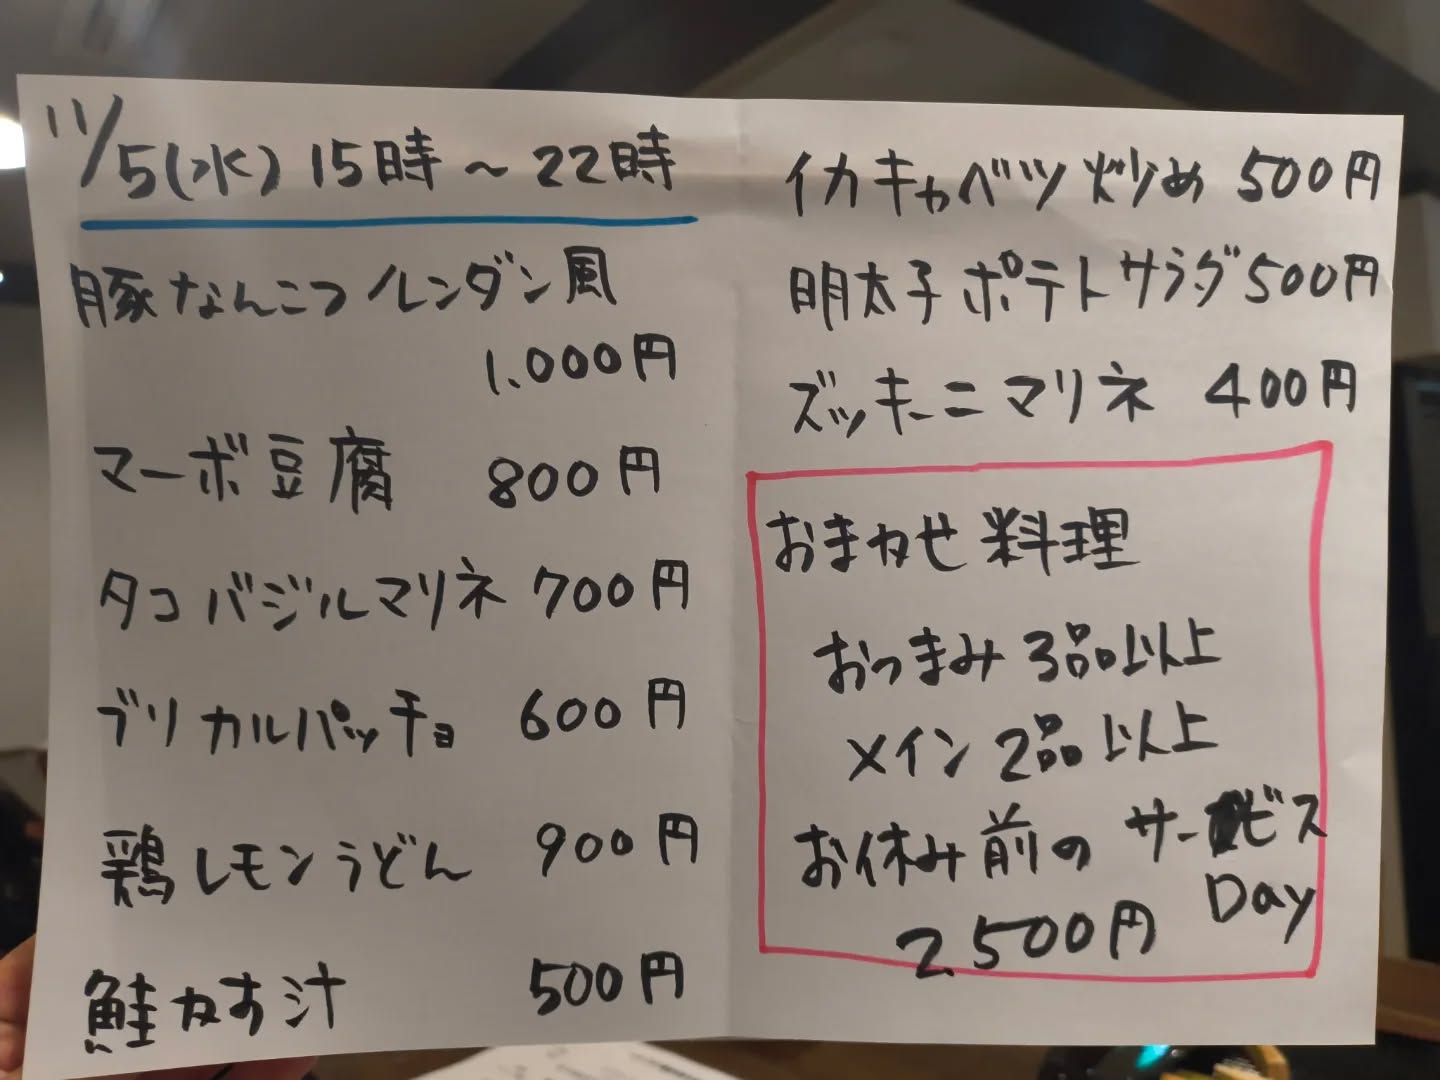 11/5(水) 15時～22時
豚なんこつルンダン風
1,000円
マーボ豆腐 800円
タコバジルマリネ 700円
ブリカルパッチョ 600円
鶏レモンうどん 900円
鮭かす汁 500円
イカキャベツ炒め 500円
明太子ポテトサラダ 500円
ズッキーニマリネ 400円
おまかせ料理
おつまみ3品以上
メイン2品以上
お休み前のサービス
Day
2,500円